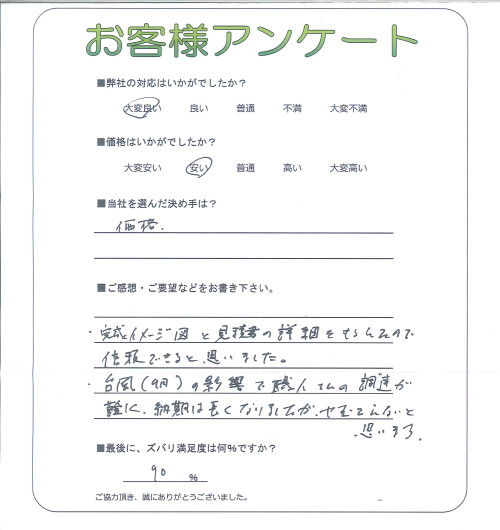 お客様アンケート
■弊社の対応はいかがでしたか？
大変良い 良い 普通 不満 大変不満
■価格はいかがでしたか？
大変安い 安い 普通 高い 大変高い
■当社を選んだ決め手は？
価格．
■ご感想・ご要望などをお書き下さい。
・完成イメージ図と見積書の詳細をもらえたので
信頼できると思いました。
・台風（9月）の影響で職人さんの調達が
難に、納期は長くなりましたが、やむをえないと
思います．
■最後に、ズバリ満足度は何%ですか？
90 %
ご協力頂き、誠にありがとうございました。